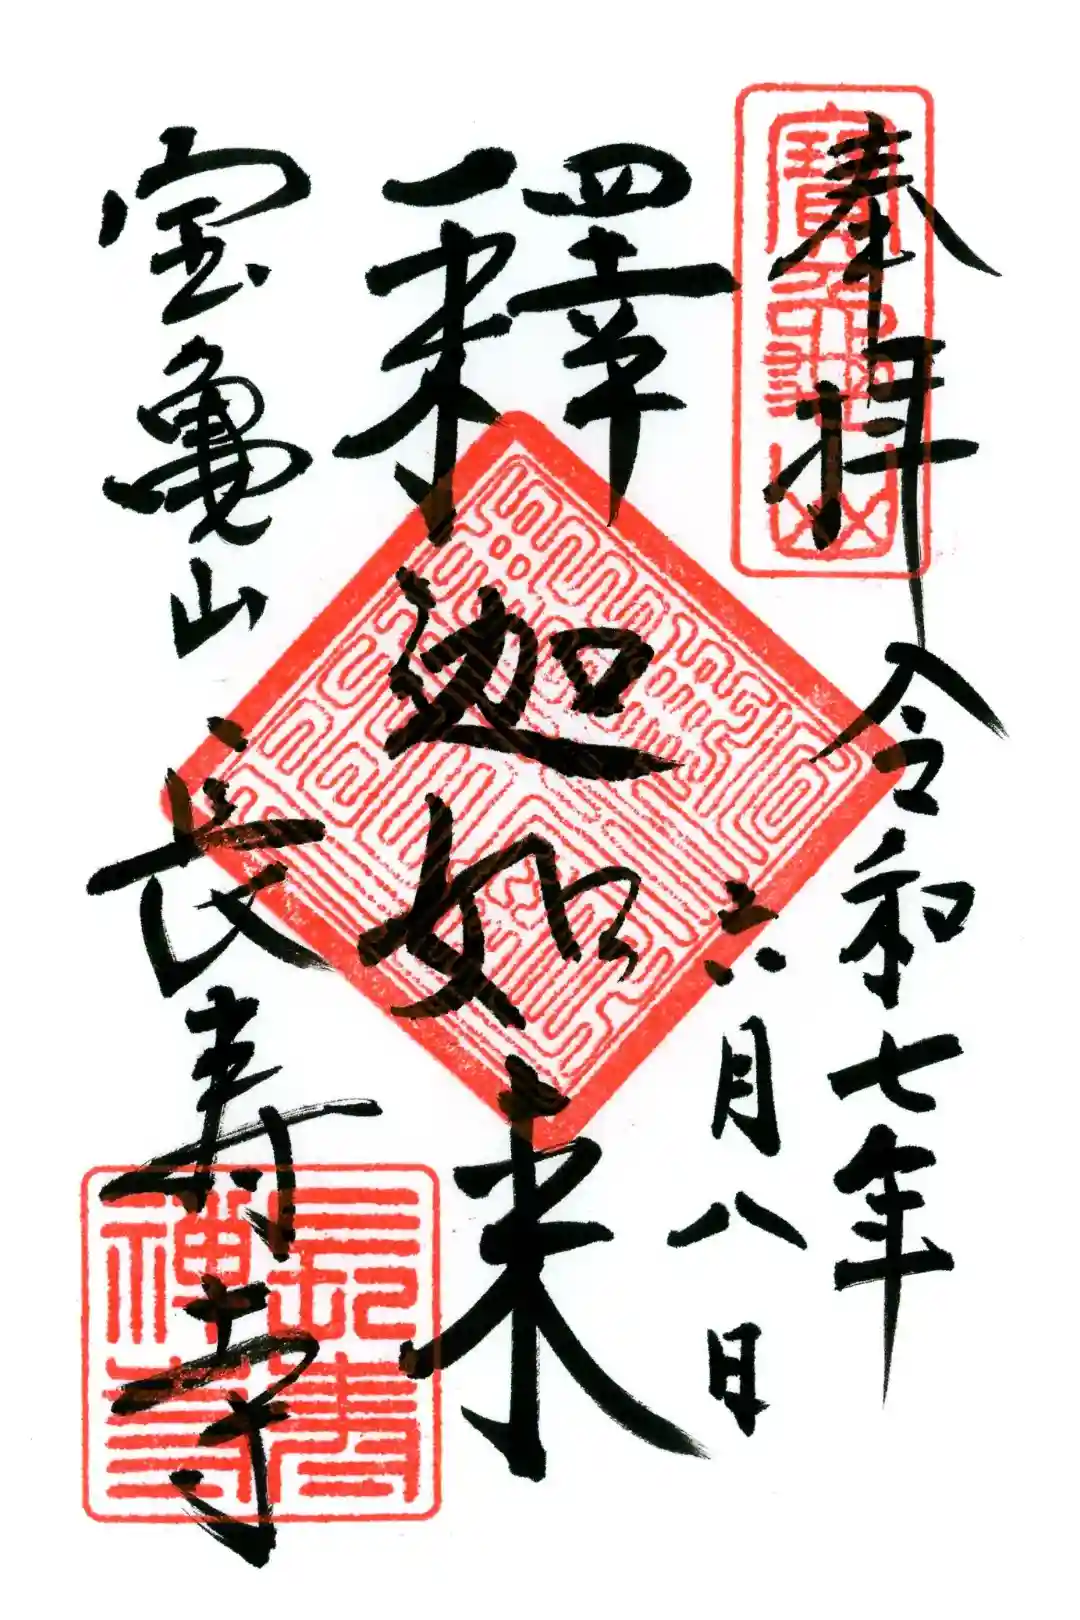 奉拝
令和七年
六月八日
釋迦如来
宝亀山
長寿寺
寶龜山
長壽
禅寺